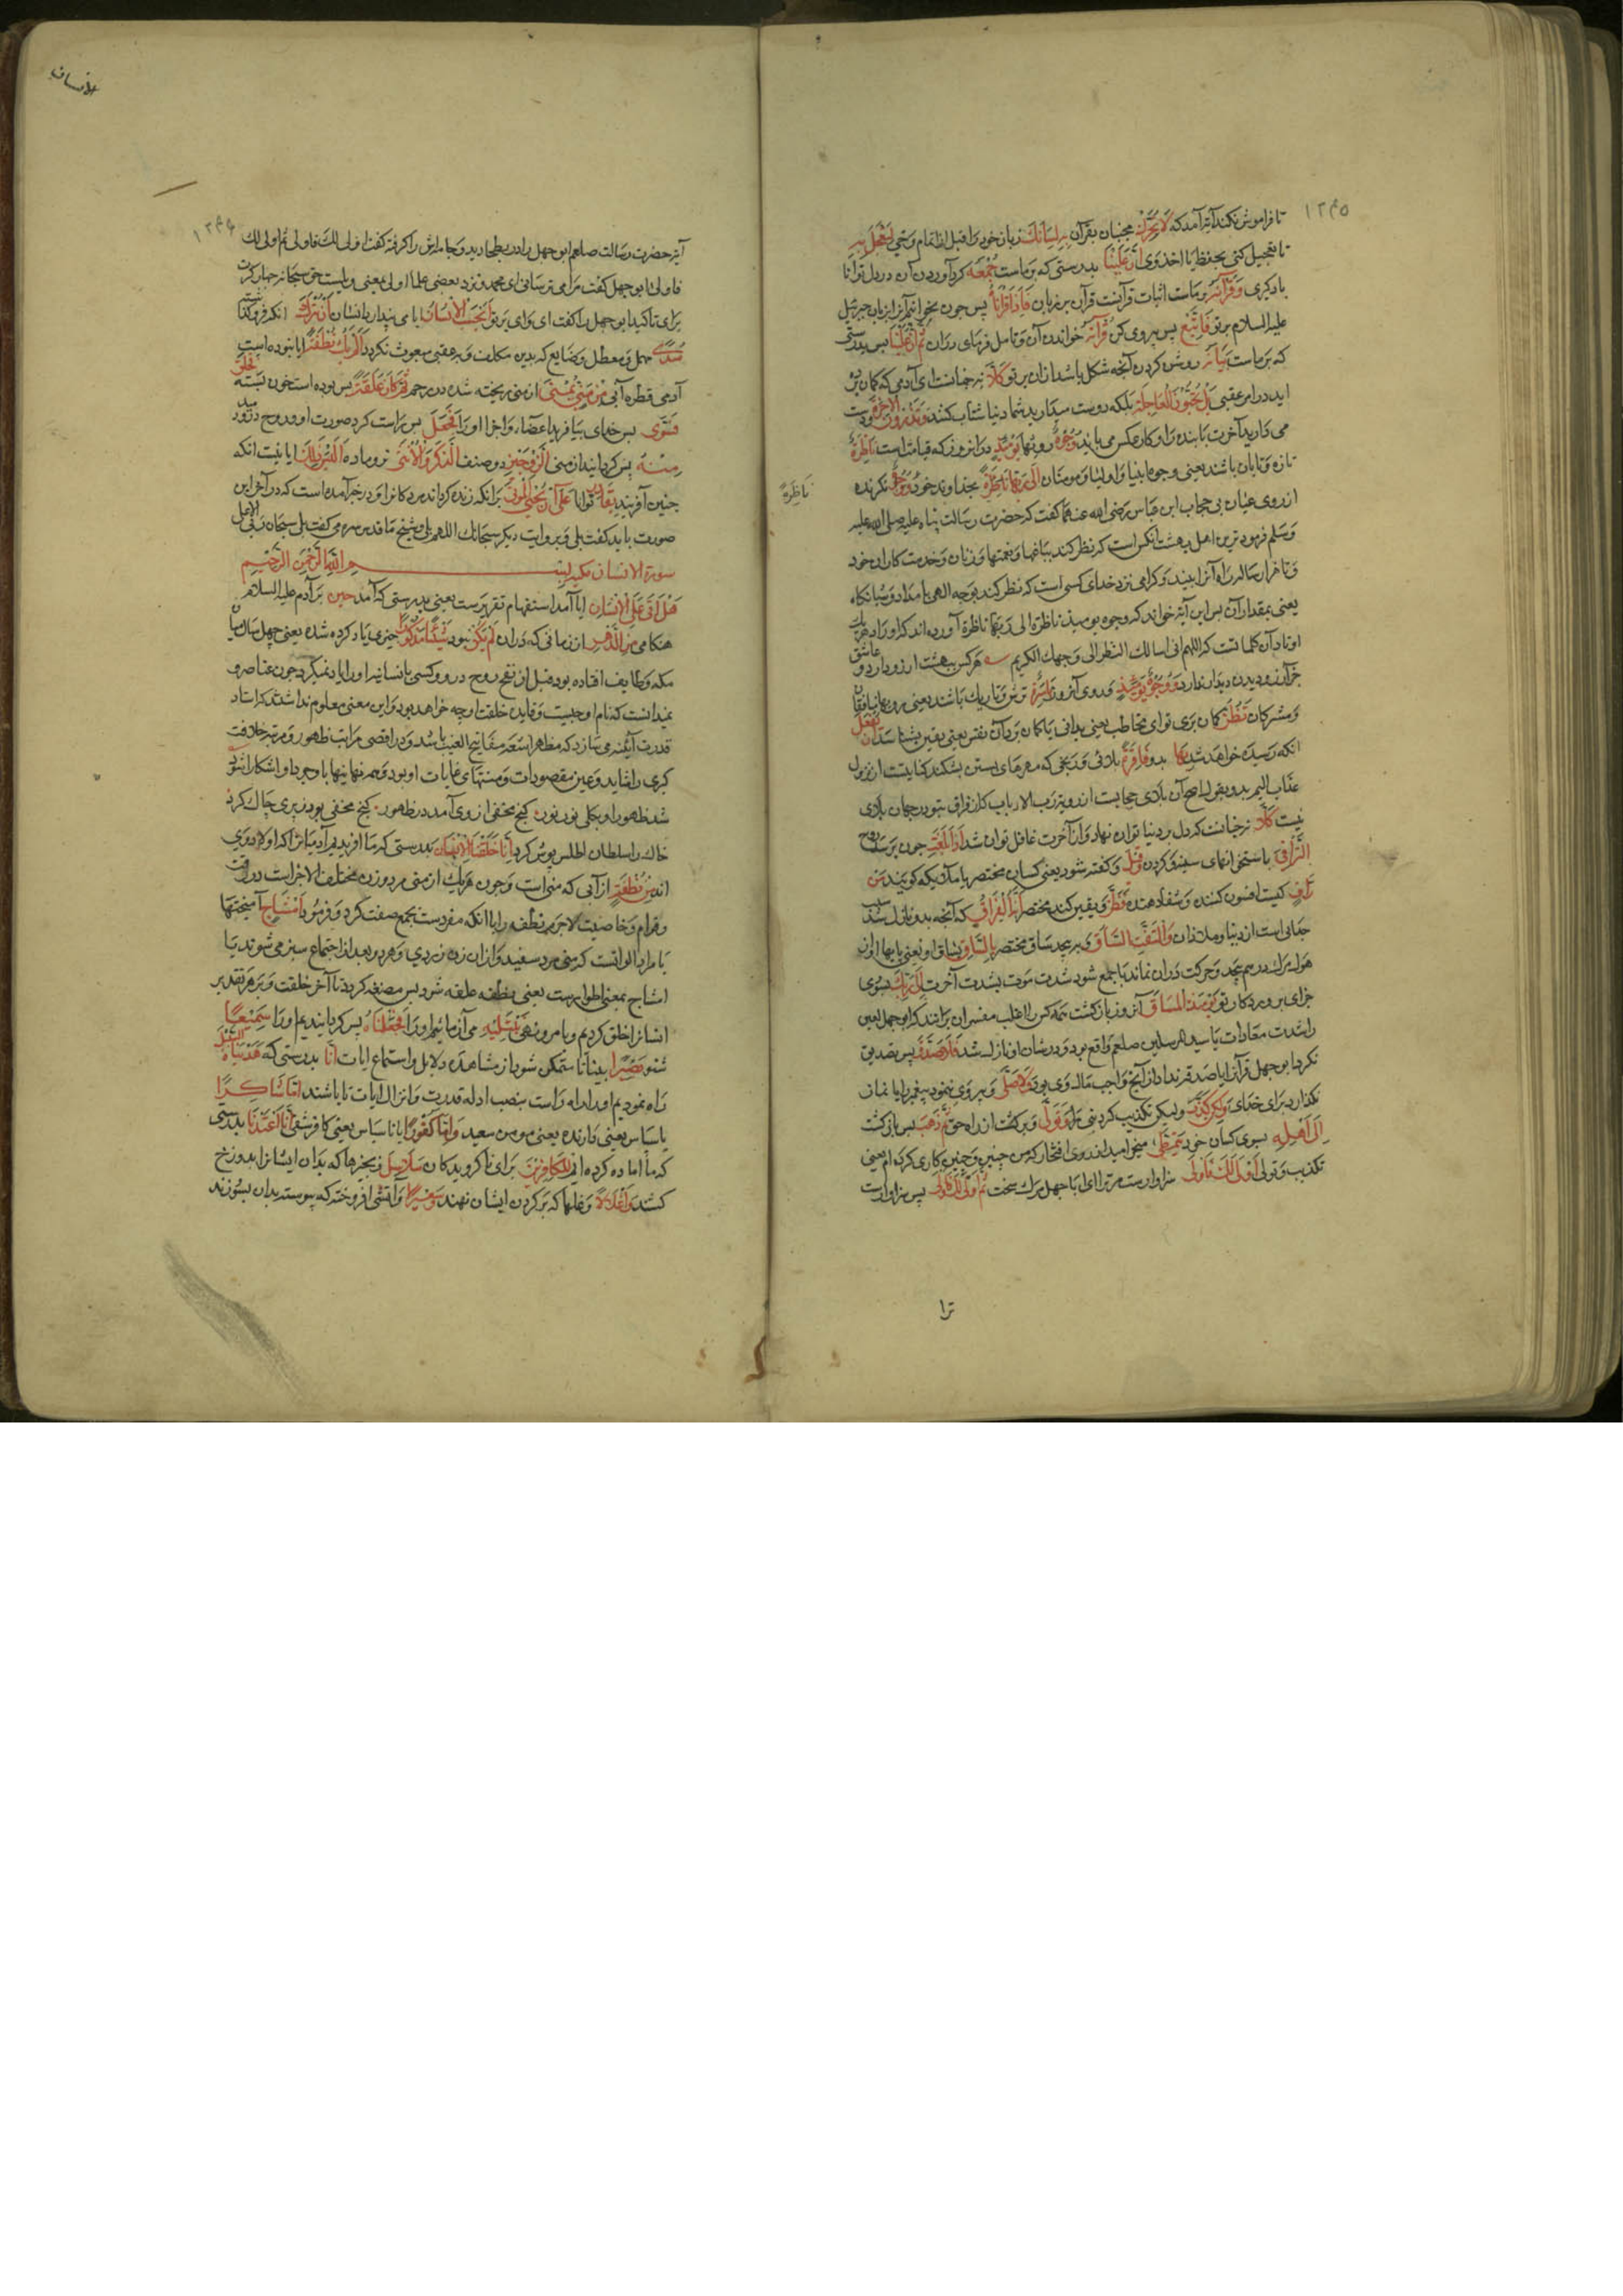 ۱۲۳۵
تا فراموش نکند آیه آمد که لَا تُحَرِّكْ مجنبان بقرآن بِهِ لِسَانَكَ زبان خود را قبل از اتمام وحی لِتَعْجَلَ بِهِ
تا تعجیل کنی بحفظ یا اخذ وی اِنَّ عَلَيْنَا بدرستی که بر ماست جَمْعَهُ گرد آوردن آن در دل تو تا آنرا
یاد گیری وَقُرْآنَهُ و بر ماست اثبات قرآنت قرآن بر زبان فَاِذَا قَرَأْنَاهُ پس چون بخوانیم آنرا از زبان جبرئیل
علیه السلام بر تو فَاتَّبِعْ پس پیروی کن قُرْآنَهُ خواندن آن و تامل فرمای در آن ثُمَّ اِنَّ عَلَيْنَا پس بدرستی
که بر ماست بَيَانَهُ روشن کردن آنچه مشکل باشد از آن بر تو كَلَّا نه چنانست ای آدمی که گمان برده
اید در امر عقبی بَلْ تُحِبُّونَ الْعَاجِلَةَ بلکه دوست میدارید شما دنیا شتاب کننده وَتَذَرُونَ الْاٰخِرَةَ و دست
می دارید آخرت پاینده را و کار عکس می باید وُجُوهٌ رویها يَوْمَئِذٍ در انروز که قیامتست نَاضِرَةٌ
تازه و تابان باشند یعنی وجوه انبیا و اولیا و مومنان اِلٰى رَبِّهَا نَاظِرَةٌ بخداوند خود نگرنده
از روی عیان بی حجاب ابن عباس رضی الله عنهما گفت که حضرت رسالت پناه علیه صلی الله علیه
وسلم فرمود ترین اهل بهشت آنکس است که نظر کند بباغها و نعمتها و زنان و خدمتکاران خود
و تا هزار ساله راه آنرا بیند و گرامی نزد خدای کسی است که نظر کند بوجه الهی بامداد و شبانگاه
یعنی بمقدار آن پس این آیه خواند که وجوه یومیذ ناظرة الی ربها ناظرة آورده اند که اوراد هر یک
اوتاد آن کلماتست که اللهم انی اسالك النظر الی وجهك الکریم هر کس بهشت آرزو دارد و عاشق
جز آرزو دیدن دیدار ندارد وَوُجُوهٌ يَوْمَئِذٍ و روی آنروز بَاسِرَةٌ ترش و تاریک باشند یعنی رویهای منافقان
و مشرکان تَظُنُّ گمان بری تو ای مخاطب یعنی بدانی یا گمان برد آن نفس یعنی یقین بشناسد اَنْ يُفْعَلَ
آنکه رسیده خواهد شد بِهَا بدو فَاقِرَةٌ بلائی و رنجی که مهرهای پشتن بشکند کنایتست از نزول
عذاب الیم بدو بقول اصح آن بلای حجابست از رویة رب الارباب که از فراق بتر در جهان بلای
نیست كَلَّا نه چنانست که دل بر دنیا توان نهاد و از آخرت غافل توان شد اِذَا بَلَغَتِ چون برسد روح
التَّرَاقِيَ باستخوانهای سینه و گردن وَقِيلَ و گفته شود یعنی کسان محتضر یا ملائکه گویند مَنْ
رَاقٍ کیست افسون کننده و شفا دهنده وَظَنَّ و یقین کند محتضر اَنَّهُ الْفِرَاقُ که آنچه بدو نازل شد سبب
جدایی است از دنیا و ملاذ آن وَالْتَفَّتِ السَّاقُ و بر پیچد ساق محتضر بِالسَّاقِ بساق او یعنی پایها از
هول مرگ درهم پیچد و حرکت در ان نماند یا جمع شود شدت موت بشدت آخرت اِلٰى رَبِّكَ بسوی
جزای پروردگار تو يَوْمَئِذٍ الْمَسَاقُ آنروز بازگشت همه کس را اغلب مفسران برانند که ابو جهل لعین
را شدت معادات با سید المرسلین صلعم واقع بود و در شان او نازل شد فَلَا صَدَّقَ پس تصدیق
نکرد ابو جهل قرآنرا یا صدقه نداد از آنچ واجب مال وی بود وَلَا صَلّٰى و پیروی ننمود پیغمبر را یا نماز
نگذارد برای خدای وَلٰكِنْ كَذَّبَ ولیکن تکذیب کرد نبی را وَتَوَلّٰى و برگشت از راه حق ثُمَّ ذَهَبَ پس بازگشت
اِلٰى اَهْلِهِ بسوی کسان خود يَتَمَطّٰى میخرامید از روی افتخار که من چنین و چنین کاری کرده ام یعنی
تکذیب و تولی اَوْلٰى لَكَ فَاَوْلٰى سزاوارست مر ترا ای ابا جهل مرگ سخت ثُمَّ اَوْلٰى لَكَ فَاَوْلٰى پس سزاوارست
نَاظِرَةٌ
ترا
الانسان
۱۲۳۶
آیه حضرت رسالت صلعم ابو جهل را در بطحا دید و جامه اش را گرفته گفت اولی لك فاولی ثم اولی لك
فاولی ابو جهل گفت مرا می ترسانی ای محمد و نزد بعضی علما اولی بمعنی ویلست حق سبحانه چهار کرت
برای تاکید ابو جهل را گفت ای وای بر تو اَيَحْسَبُ الْاِنْسَانُ ایا می پندارد انسان اَنْ يُتْرَكَ انکه فرو گذاشته
سُدًى مهمل و معطل و ضایع که بدین مکلف و بعقبی مبعوث نگردد اَلَمْ يَكُ نُطْفَةً ایا نبوده است
آدمی قطره آبی مِنْ مَنِيٍّ يُمْنٰى از منی ریخته شده در رحم ثُمَّ كَانَ عَلَقَةً پس بوده است خون بسته فَخَلَقَ
فَسَوّٰى پس خدای بیافرید اعضاء و اجزا او را فَجَعَلَ پس راست کرد صورت او و روح درو دمید
مِنْهُ پس گردانید از منی الزَّوْجَيْنِ دو صنف الذَّكَرَ وَالْاُنْثٰى نر و ماده اَلَيْسَ ذٰلِكَ ایا نیست آنکه
چنین آفریند بِقَادِرٍ توانا عَلٰى اَنْ يُحْيِيَ الْمَوْتٰى برانکه زنده گرداند مردگانرا و در خبر آمده است که در آخر این
صورت باید گفت بلی و بروایت دیگر سبحانك اللهم بلی و شیخ ما قدس سره می گفت بلی سبحان ربی الاعلی
سورة الانسان مکیه بِسْمِ اللهِ الرَّحْمٰنِ الرَّحِيمِ
هَلْ اَتٰى عَلَى الْاِنْسَانِ ایا آمد استفهام تقریرست یعنی بدرستی که آمد حِينٌ بر آدم علیه السلام
هنگامی مِنَ الدَّهْرِ از زمانی که در ان لَمْ يَكُنْ نبود شَيْئًا مَذْكُورًا چیزی یاد کرده شده یعنی چهل سال میان
مکه و طایف افتاده بود قبل از نفخ روح درو و کسی بانسانیه او را یاد نمیکرد چون عناصر و
نمیدانست که نام او چیست و فایده خلقت او چه خواهد بود و این معنی معلوم نداشتند که استاد
قدرت آئینه می سازد که مظهر اسعه مفاتیح الغیب باشد و در اقصی مراتب ظهور و مرتبه خلافت
کبری را شاید و عین مقصودات و منتهای غایات او بود و همه نهانیها با وجود او اشکارا شود
شد ظهور او بکلی نور نور گنج مخفی از وی آمد در ظهور گنج مخفی بود ز پری چاک کرد
خاک را سلطان اطلس پوش کرد اِنَّا خَلَقْنَا الْاِنْسَانَ بدرستی که ما آفریدیم آدمیانرا که اولاد وی
اند مِنْ نُطْفَةٍ از آبی که منی است و چون هر یک از منی مرد و زن مختلف الاجزاست در رقت
و قوام و خاصیت لاجرم نطفه را با آنکه مفردست بجمع صفت کرد و فرمود اَمْشَاجٍ آمیختها
یا مراد الوانست که منی مرد سفید و از ان زن زردی و هر دو بعد از اجتماع سبز می شوند یا
امشاج بمعنی اطوارست یعنی نطفه علقه شود پس مضغه گردد تا آخر خلقت و بر هر تقدیر
انسانرا خلق کردیم و بامر و نهی نَبْتَلِيهِ می آزمائیم او را فَجَعَلْنَاهُ پس گردانیدیم او را سَمِيعًا
شنو بَصِيرًا بینا تا متمکن شود از مشاهده دلایل و استماع ایات اِنَّا بدرستی که هَدَيْنَاهُ السَّبِيلَ
راه نمودیم او را راه راست بنصب ادله قدرت و انزال ایات تا یا باشند اِمَّا شَاكِرًا
یا سپاس یعنی دارنده یعنی مومن سعید وَاِمَّا كَفُورًا یا ناسپاس یعنی کافر شقی اِنَّا اَعْتَدْنَا بدرستی
که ما اماده کرده ایم لِلْكَافِرِينَ برای ناگرویدگان سَلَاسِلَ زنجیرها که بدان ایشانرا بدوزخ
کشند وَاَغْلَالًا و غلها که بر گردن ایشان نهند وَسَعِيرًا و آتشی افروخته که پیوسته بدان بسوزند